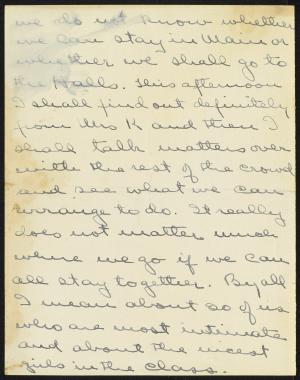 we do not know whether
we can stay in Main or
whether we shall go to
the Halls. This afternoon
I shall find out definitely
from Mrs K and then I
shall talk matters over
with the rest of the crowd
and see what we can
arrange to do. It really
does not matter much
where we go if we can
all stay together. By all
I mean about 20 of us
who are most intimate
and about the nicest
girls in the class.